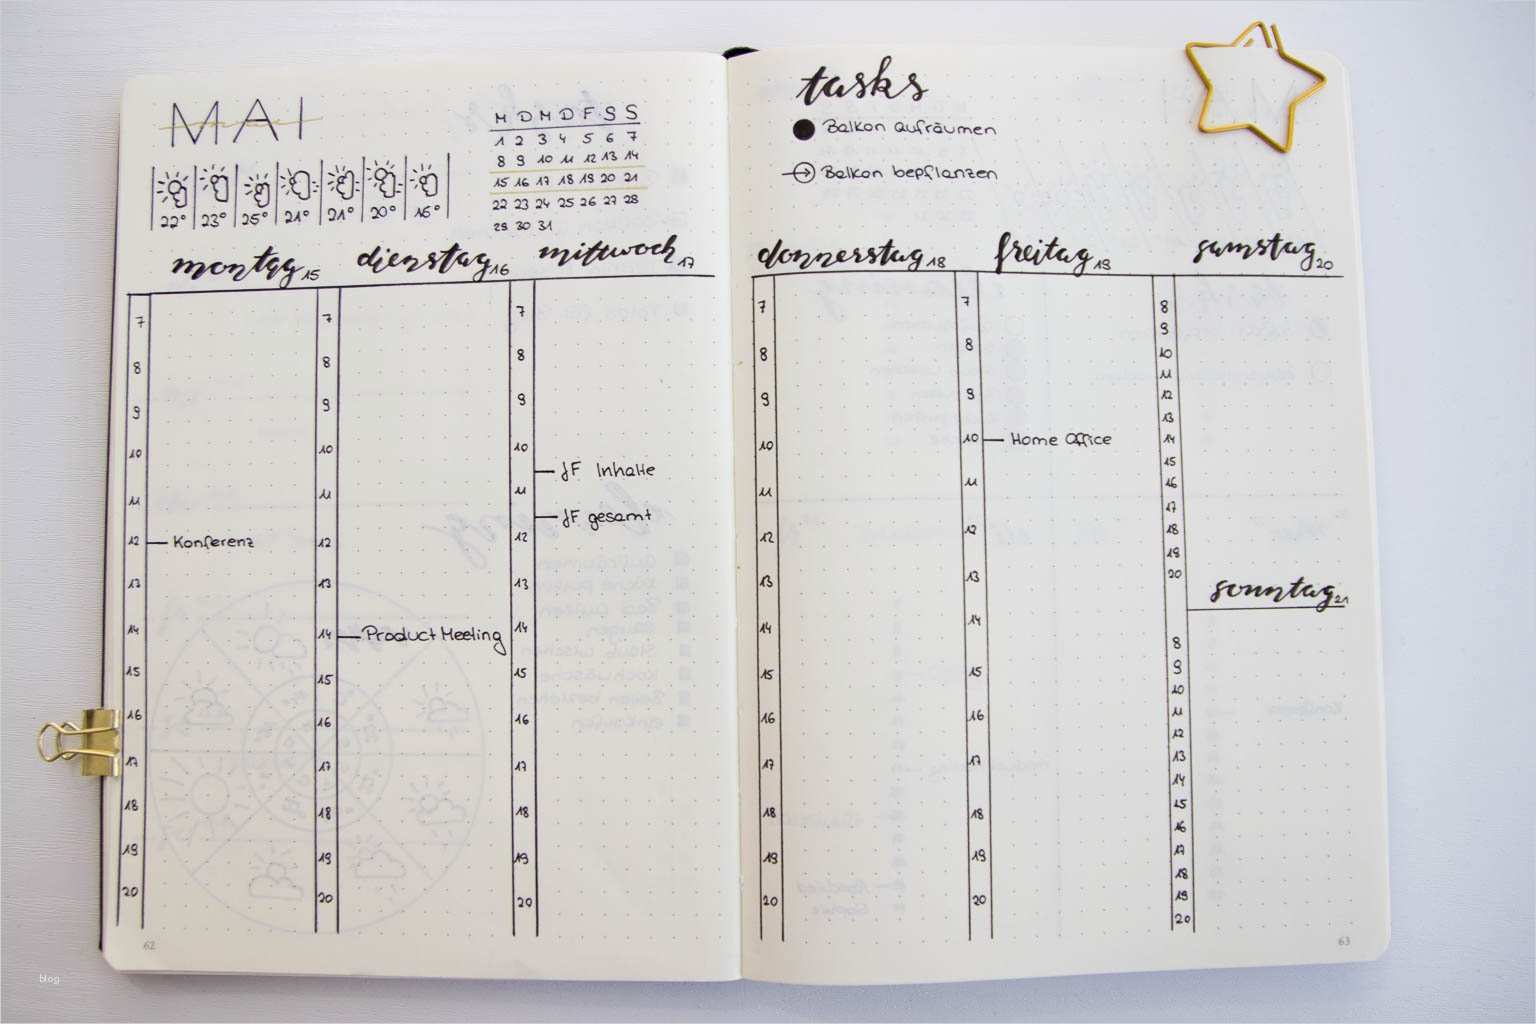 MAI
22° 23° 25° 21° 21° 20° 16°
M D M D F S S
1 2 3 4 5 6 7
8 9 10 11 12 13 14
15 16 17 18 19 20 21
22 23 24 25 26 27 28
29 30 31
montag 15
7
8
9
10
11
12 Konferenz
13
14
15
16
17
18
19
20
dienstag 16
7
8
9
10
11
12
13
14 Product Meeting
15
16
17
18
19
20
mittwoch 17
7
8
9
10
JF Inhalte
11
JF gesamt
12
13
14
15
16
17
18
19
20
62
blog
tasks
Balkon aufräumen
Balkon bepflanzen
donnerstag 18
7
8
9
10
11
12
13
14
15
16
17
18
19
20
freitag 19
7
8
9
10 Home Office
11
12
13
14
15
16
17
18
19
20
samstag 20
8
9
10
11
12
13
14
15
16
17
18
19
20
sonntag 21
8
9
10
11
12
13
14
15
16
17
18
19
20
63